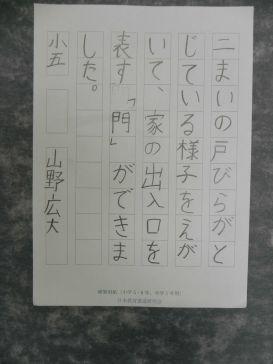 二まいの戸びらがと
じている様子をえが
いて、家の出入口を
表す「門」ができま
した。
小五 山野広大